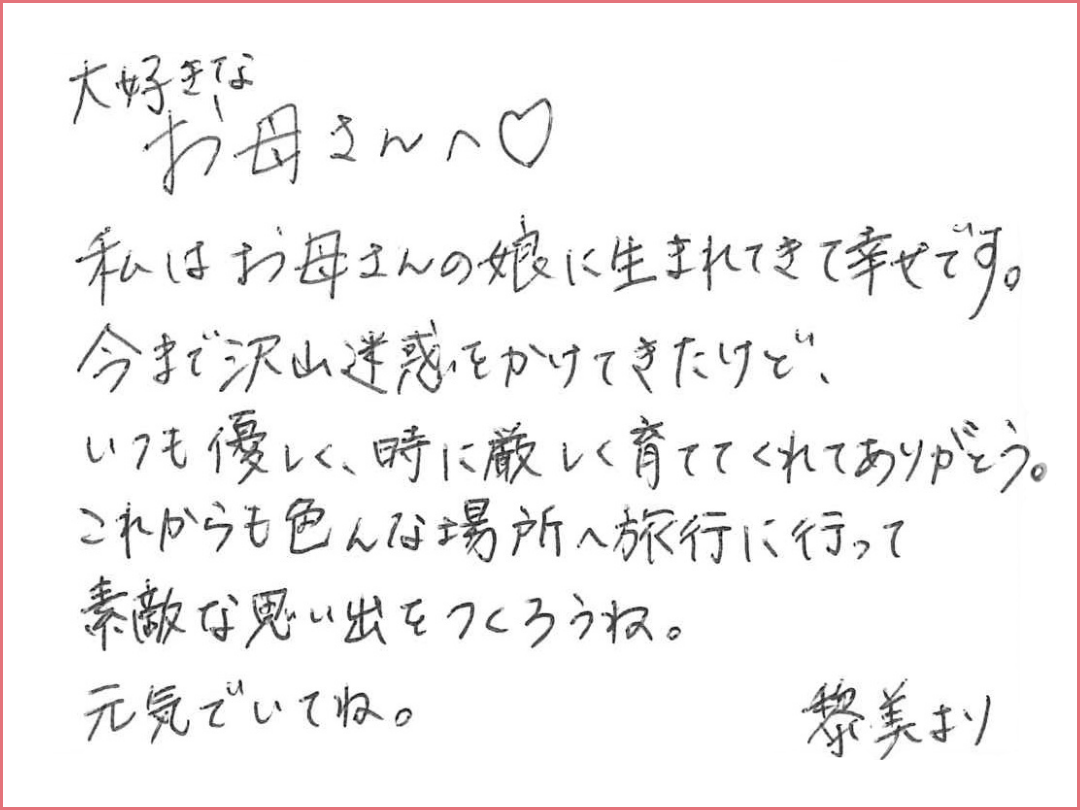 大好きな
お母さんへ♡
私はお母さんの娘に生まれてきて幸せです。
今まで沢山迷惑をかけてきたけど、
いつも優しく、時に厳しく育ててくれてありがとう。
これからも色んな場所へ旅行に行って
素敵な思い出をつくろうね。
元気でいてね。
黎美より